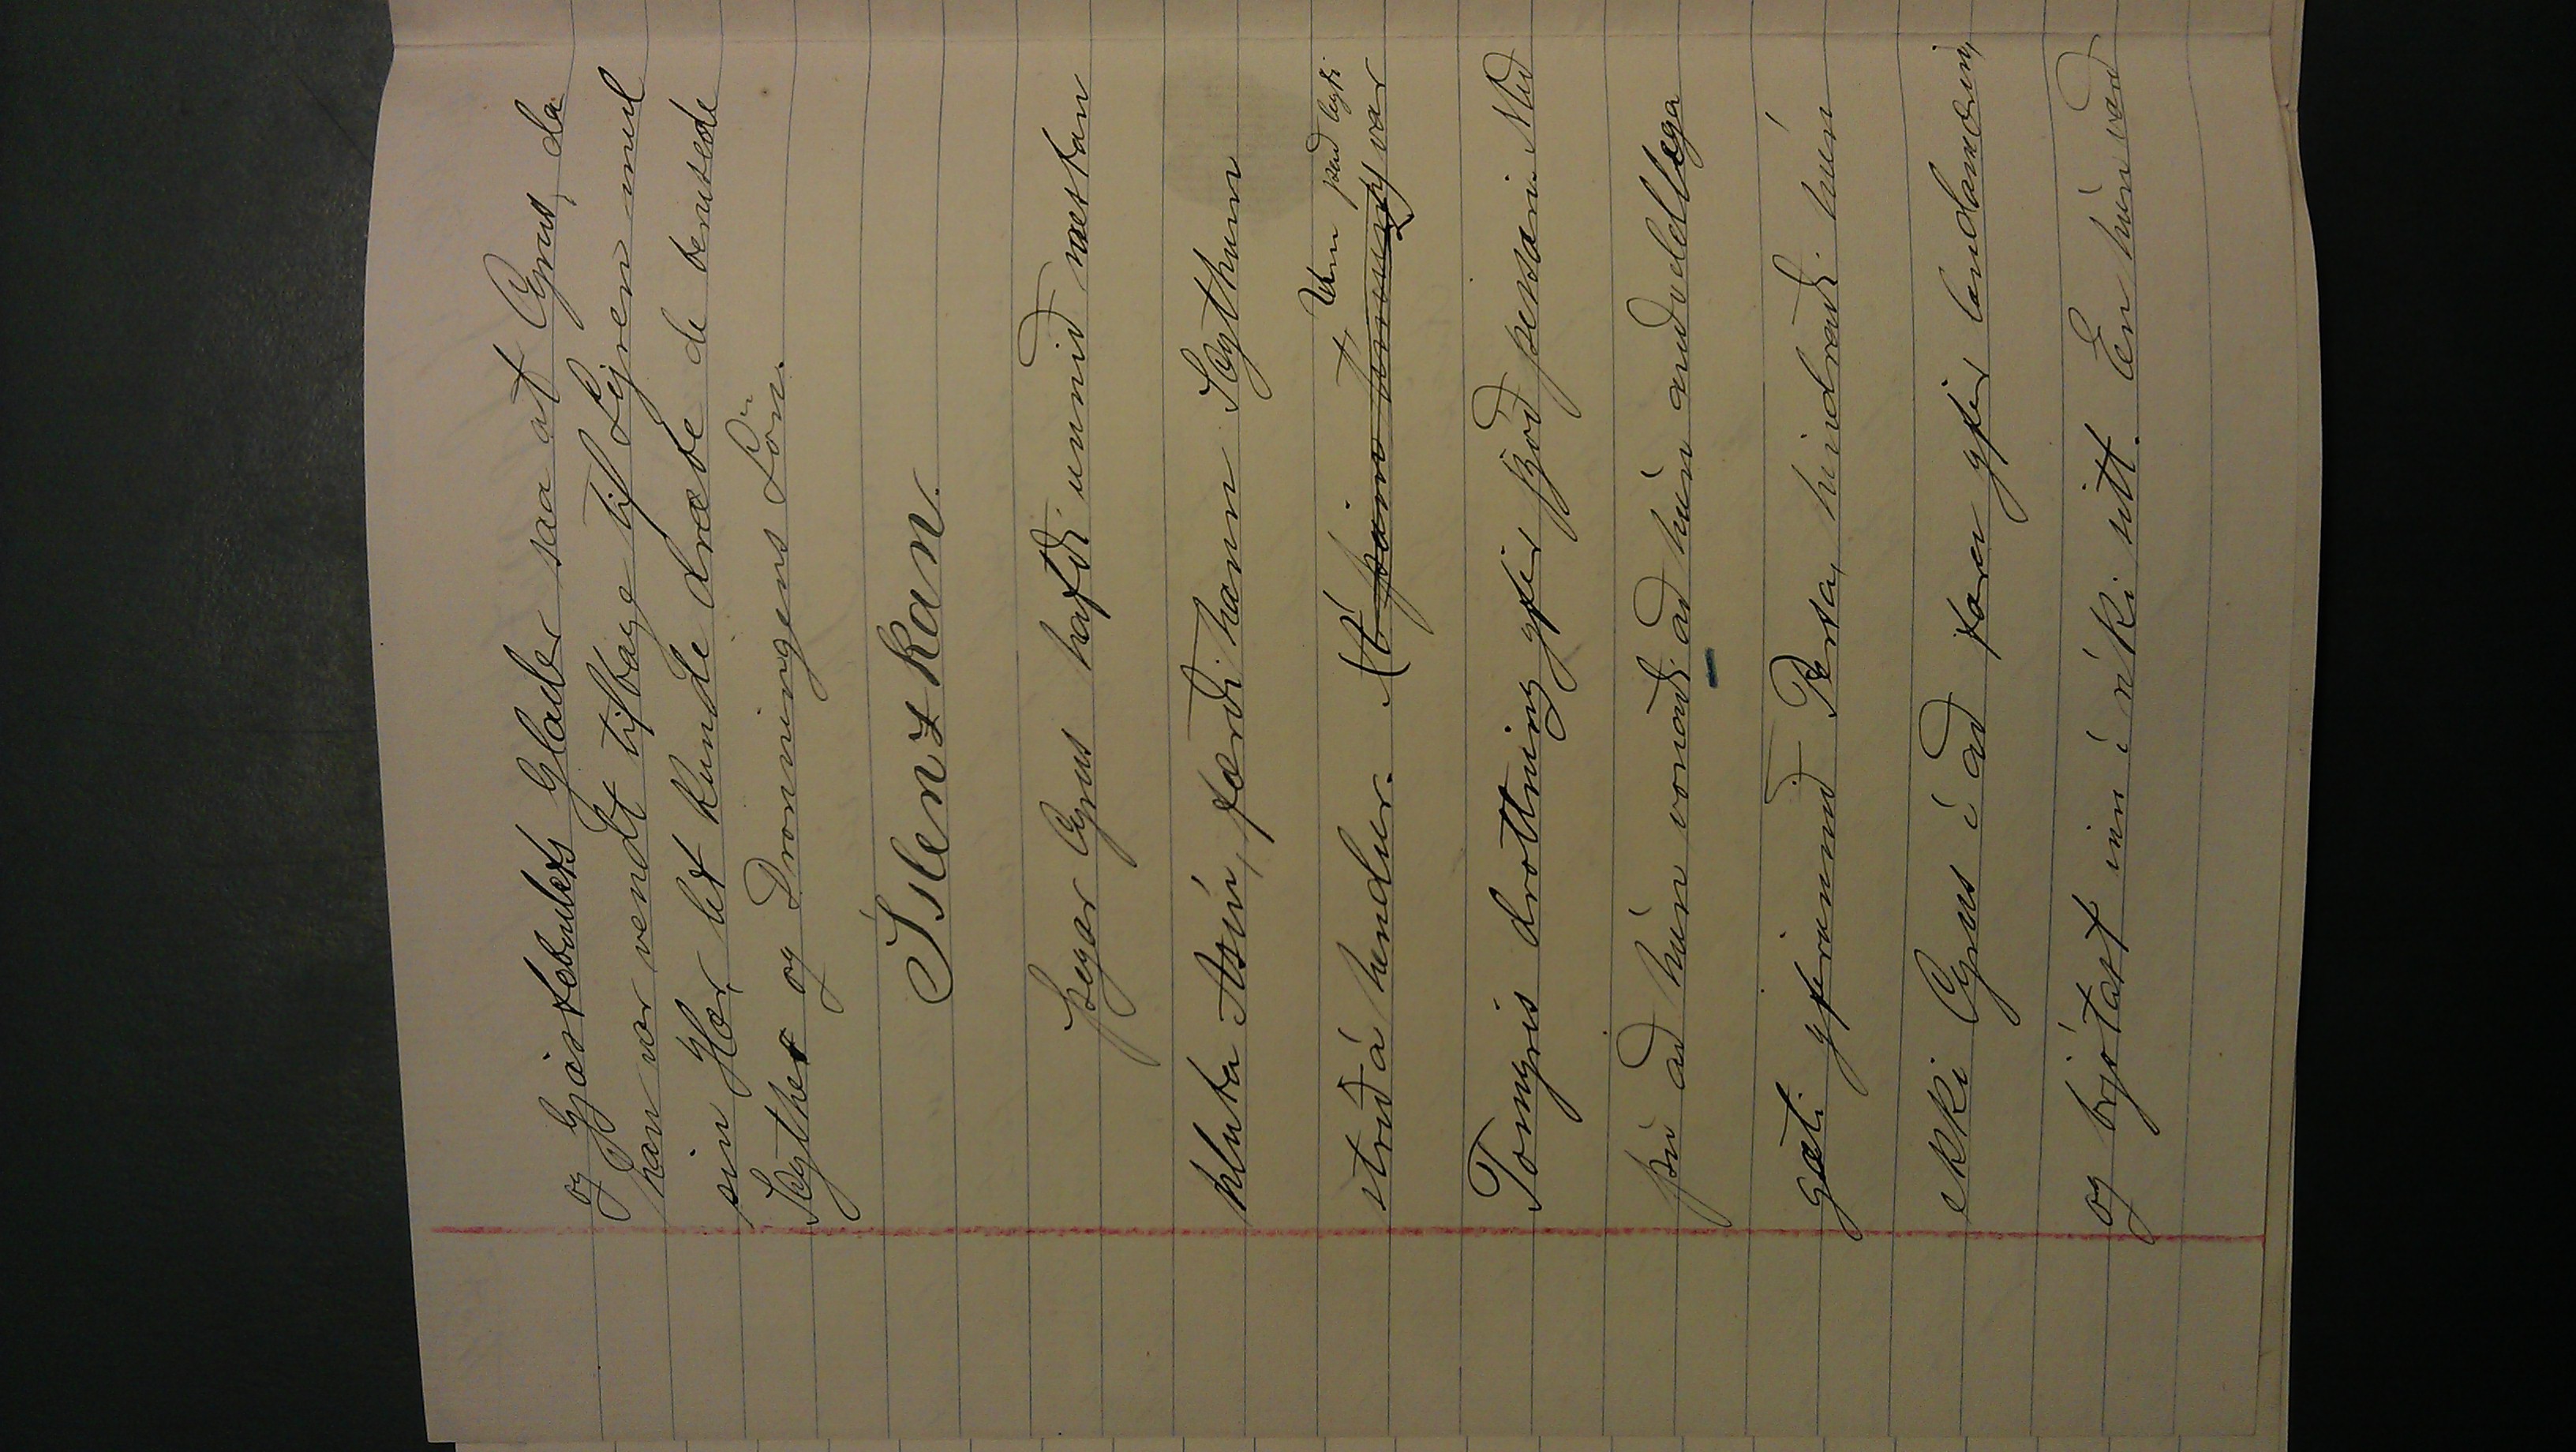 og Gjæstebudets Glæder saa at Cyrus, da
han var vendt tilbage til Lejren med
sin Hær, let kunde dræbe de berusede
Skyther og Dronningens Søn.
Íslenzkan.
Þegar Cyrus hafði unnið mestan
hluta Asiu, færði hann Skythum
stríð á hendur. Um það leyti var
Tomyris drottning yfir þjóð þessari. Með
því að hún vonaði að hún auðveldlega
gæti yfirunnið Persa, hindraði hún
ekki Cyrus í að fara yfir landamærin,
og brjótast inn í ríki sitt. En hún varð